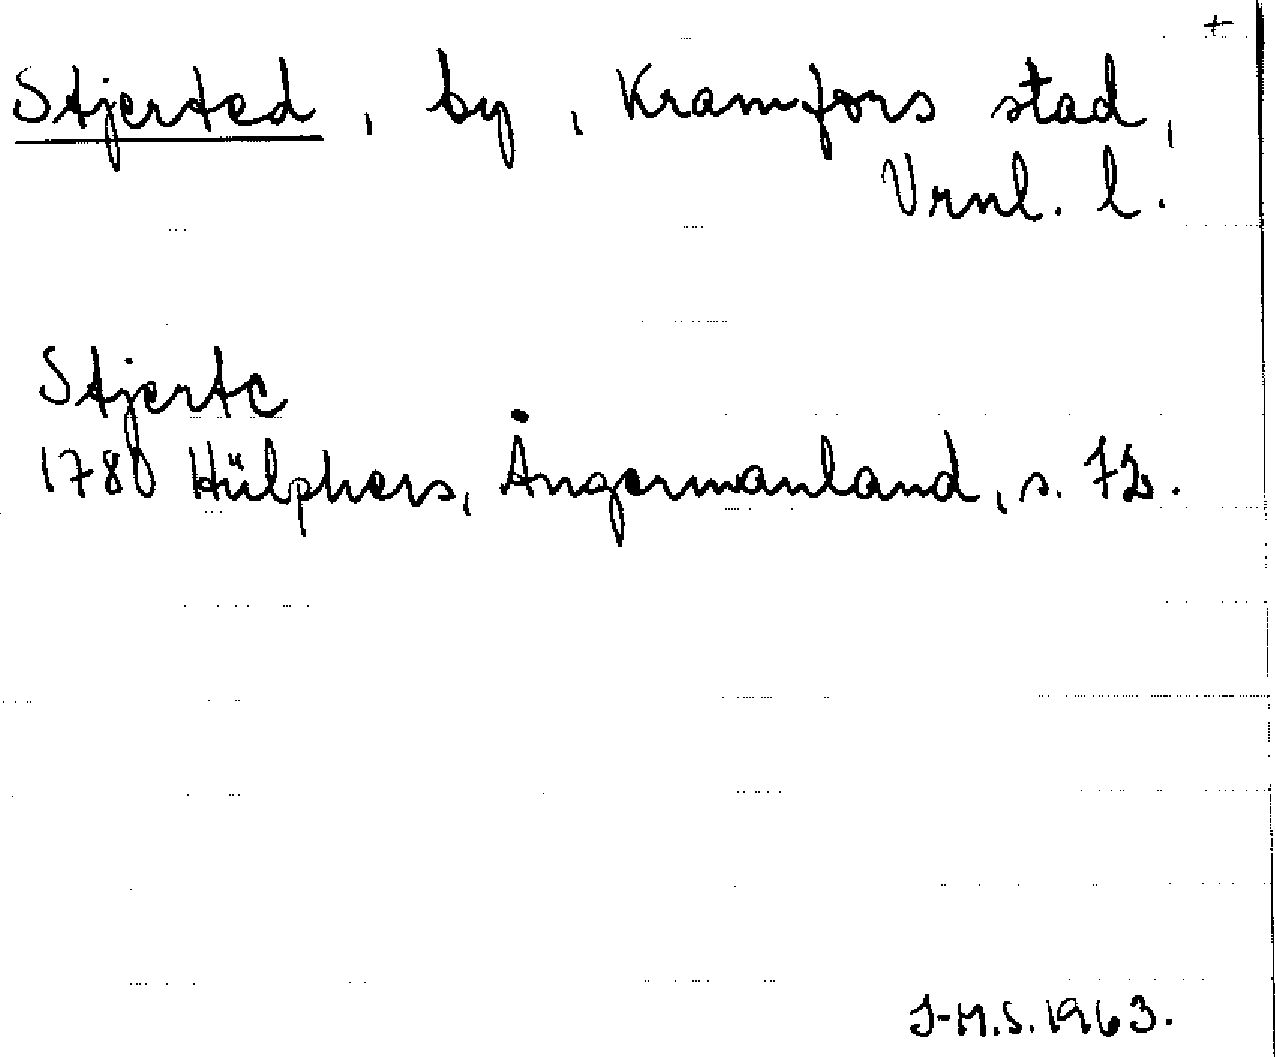 +
Stjerted, by, Kramfors stad,
Vrnl. l.
Stjerte
1780 Hülphers, Ångermanland, s. 72.
J-M.S. 1963.